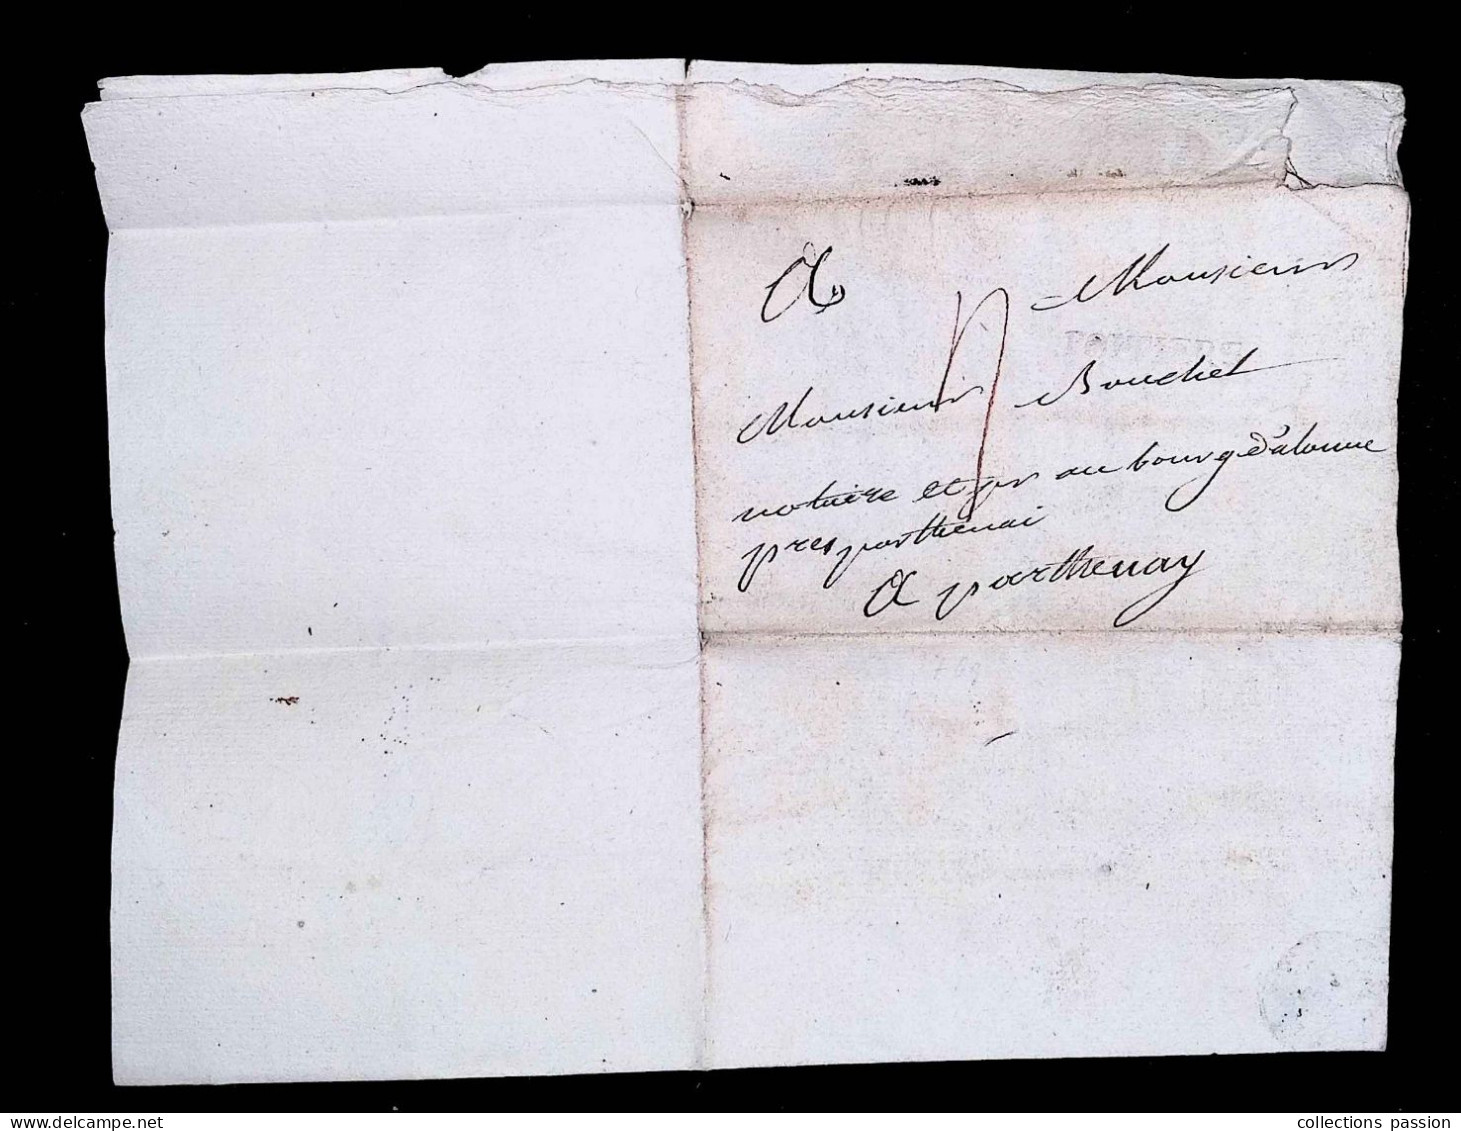 A Monsieur
Monsieur Bouchet
notaire et pr au bourg d'alonne
pres parthenai
A parthenay
769
collections passion